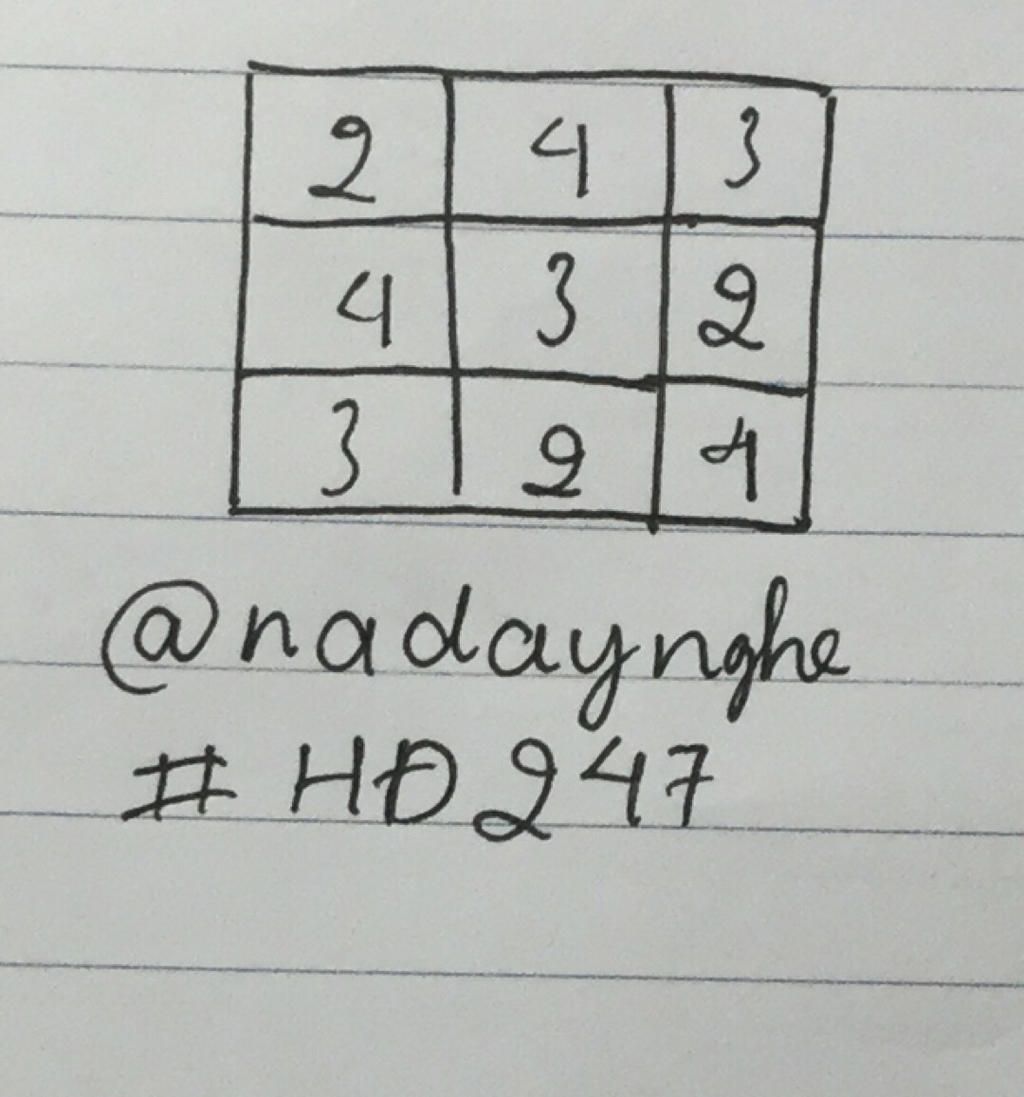 2 4 3
4 3 2
3 2 4
@nadaynghe
#HĐ247